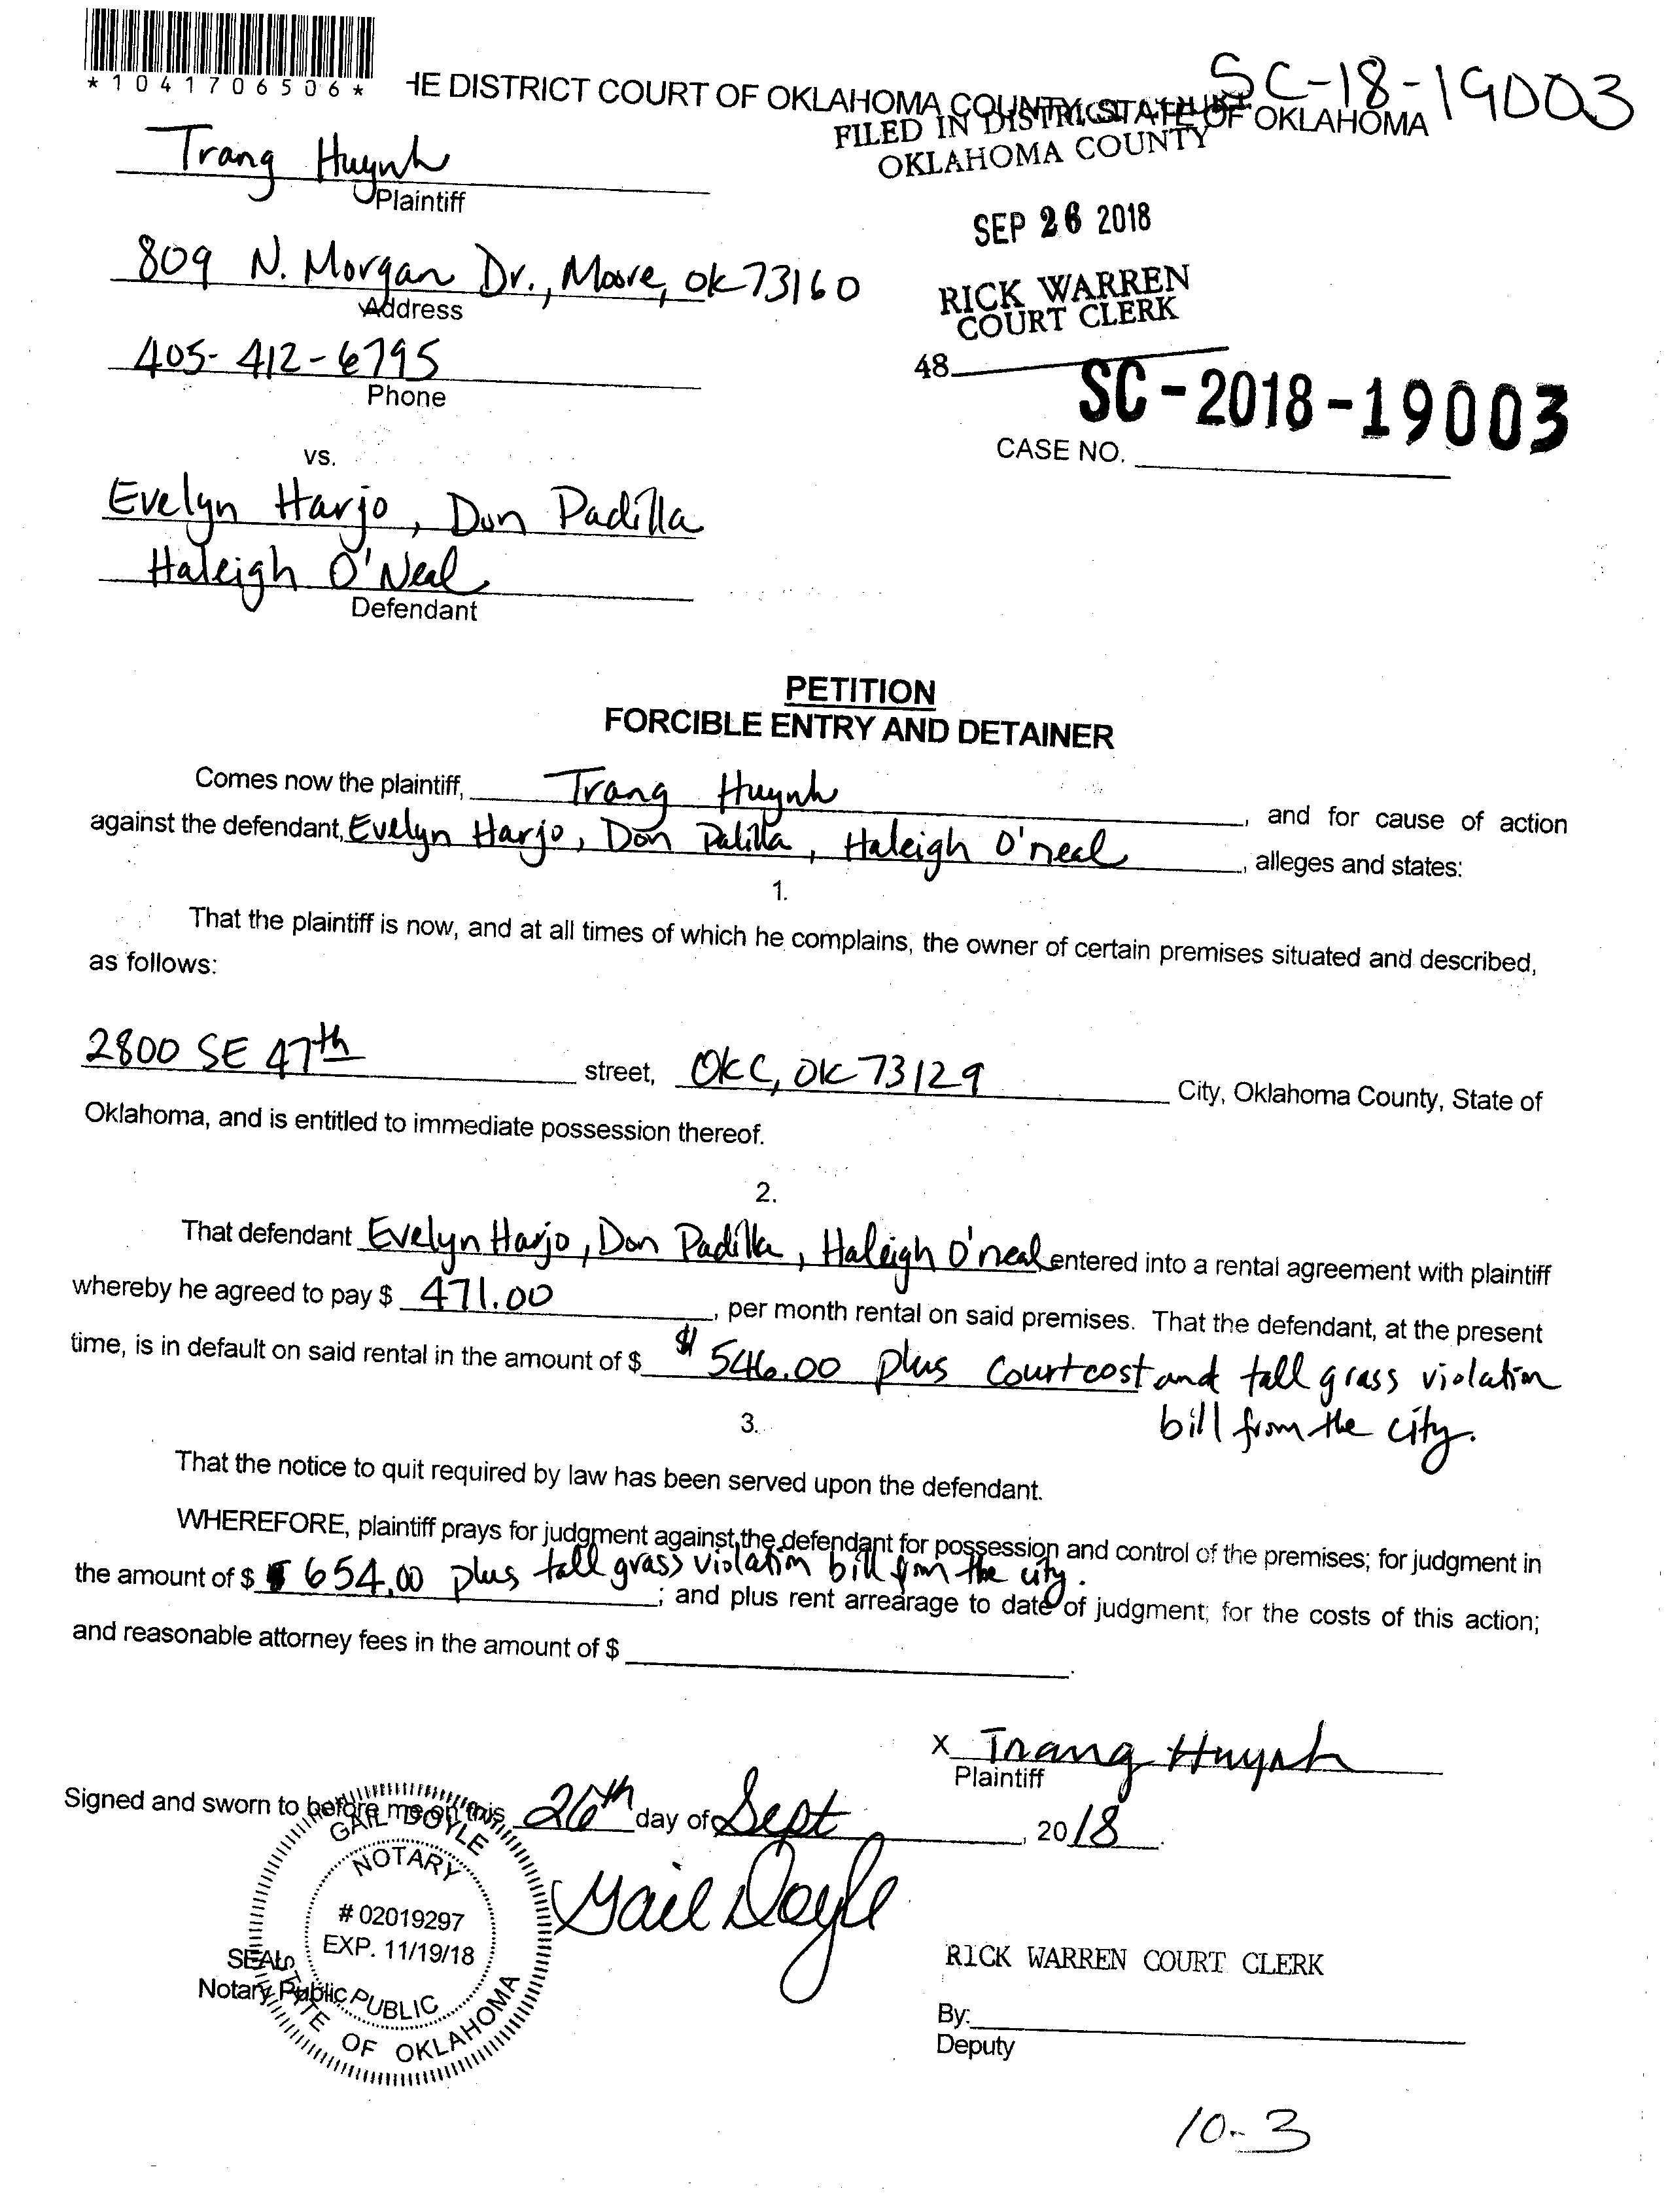 *1041706506*
HE DISTRICT COURT OF OKLAHOMA COUNTY, STATE OF OKLAHOMA
SC-18-19003
FILED IN DISTRICT COURT
OKLAHOMA COUNTY
Trang Huynh
Plaintiff
SEP 26 2018
809 N. Morgan Dr., Moore, OK 73160
Address
RICK WARREN
COURT CLERK
405-412-6795
Phone
48
SC-2018-19003
CASE NO.
vs.
Evelyn Harjo, Don Padilla
Haleigh O'Neal
Defendant
PETITION
FORCIBLE ENTRY AND DETAINER
Comes now the plaintiff, Trang Huynh, and for cause of action
against the defendant, Evelyn Harjo, Don Palilla, Haleigh O'neal, alleges and states:
1.
That the plaintiff is now, and at all times of which he complains, the owner of certain premises situated and described,
as follows:
2800 SE 47th street, OKC, OK 73129 City, Oklahoma County, State of
Oklahoma, and is entitled to immediate possession thereof.
2.
That defendant Evelyn Harjo, Don Padilla, Haleigh O'neal entered into a rental agreement with plaintiff
whereby he agreed to pay $ 471.00, per month rental on said premises. That the defendant, at the present
time, is in default on said rental in the amount of $ $546.00 plus Court cost and tall grass violation
bill from the city.
3.
That the notice to quit required by law has been served upon the defendant.
WHEREFORE, plaintiff prays for judgment against the defendant for possession and control of the premises; for judgment in
the amount of $ $654.00 plus tall grass violation bill from the city.; and plus rent arrearage to date of judgment; for the costs of this action;
and reasonable attorney fees in the amount of $
X Trang Huynh
Plaintiff
Signed and sworn to before me on this 26th day of Sept, 2018.
Gail Doyle
GAIL DOYLE
NOTARY
# 02019297
EXP. 11/19/18
PUBLIC
STATE OF OKLAHOMA
SEAL
Notary Public
RICK WARREN COURT CLERK
By:
Deputy
10-3